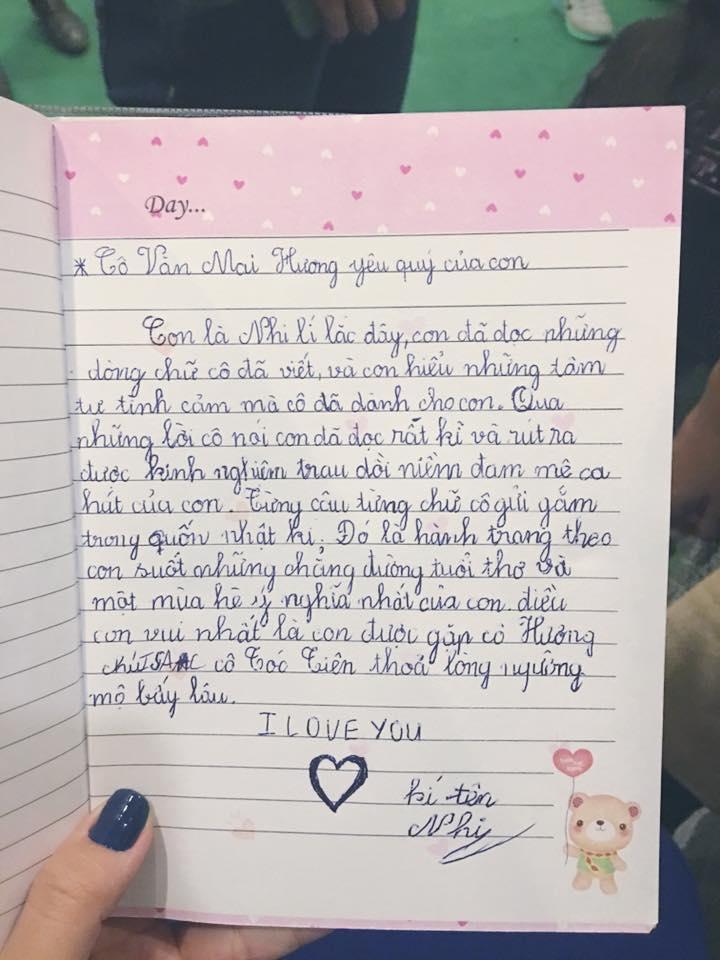 Day...
* Cô Văn Mai Hương yêu quý của con
Con là Nhi lí lắc đây, con đã đọc những
dòng chữ cô đã viết, và con hiểu những tâm
tư tình cảm mà cô đã dành cho con. Qua
những lời cô nói con đã đọc rất kỉ và rút ra
được kinh nghiệm trau dồi niềm đam mê ca
hát của con. Từng câu từng chữ cô gửi gắm
trong quốn nhật kí. Đó là hành trang theo
con suốt những chặng đường tuổi thơ và
một mùa hè ý nghĩa nhất của con. điều
con vui nhất là con được gặp cô Hương
chú ISAAC cô Tóc Tiên thoả lòng ngưỡng
mộ bấy lâu.
I LOVE YOU
kí tên
Nhi